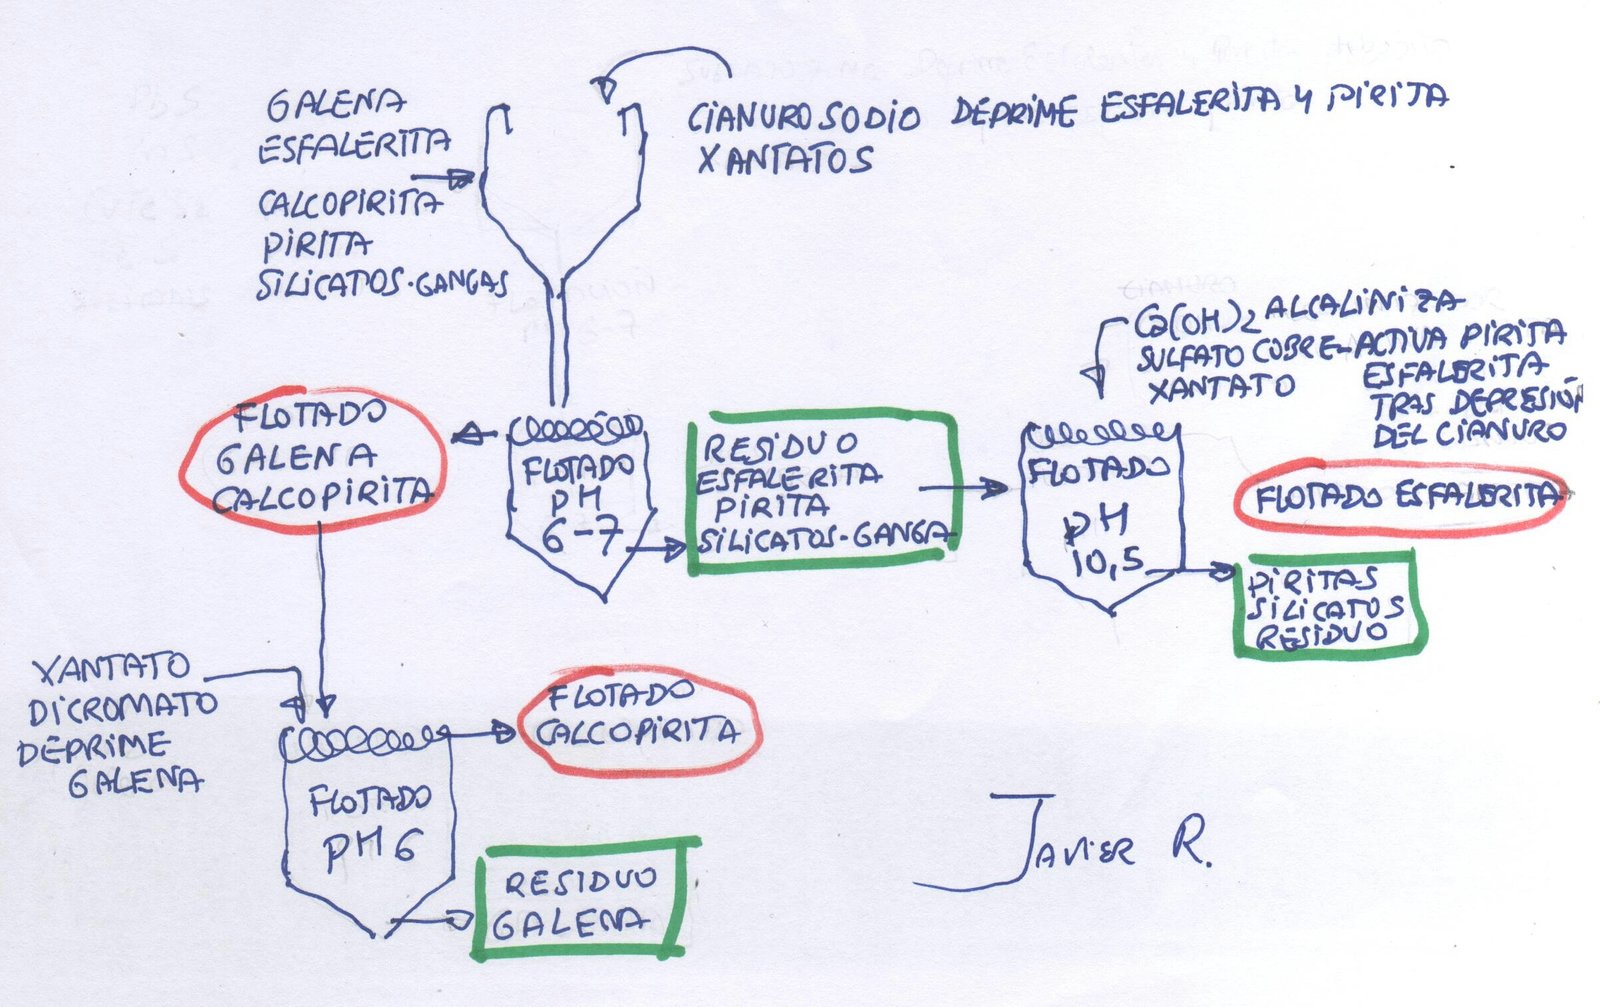 GALENA
ESFALERITA
CALCOPIRITA
PIRITA
SILICATOS-GANGAS
CIANURO SODIO DEPRIME ESFALERITA Y PIRITA
XANTATOS
Ca(OH)2 ALCALINIZA
SULFATO COBRE-ACTIVA PIRITA
XANTATO ESFALERITA
TRAS DEPRESIÓN
DEL CIANURO
FLOTADO
GALENA
CALCOPIRITA
FLOTADO
PH
6-7
RESIDUO
ESFALERITA
PIRITA
SILICATOS-GANGA
FLOTADO
PH
10,5
FLOTADO ESFALERITA
PIRITAS
SILICATOS
RESIDUO
XANTATO
DICROMATO
DEPRIME
GALENA
FLOTADO
CALCOPIRITA
FLOTADO
PH 6
RESIDUO
GALENA
JAVIER R.